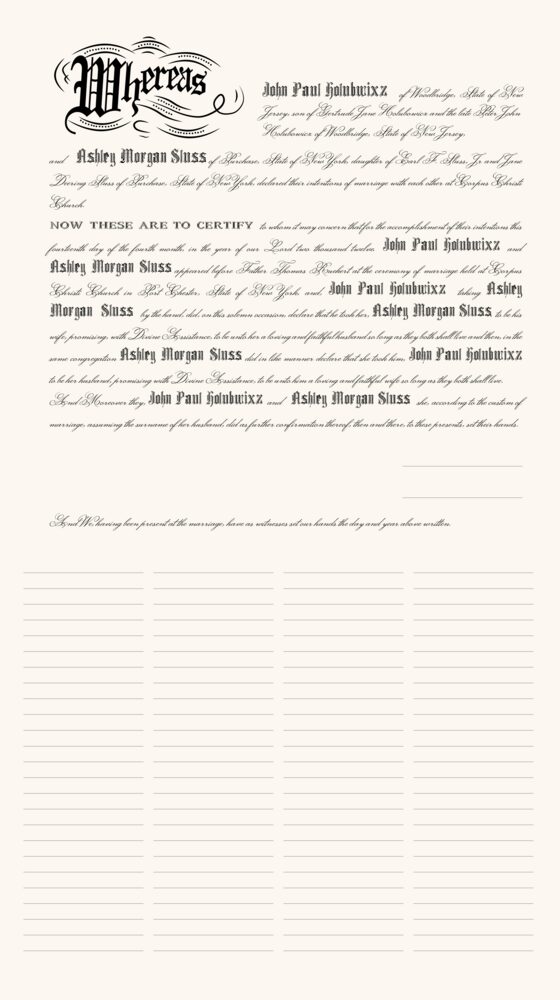 Whereas
John Paul Holubwixz of Woodbridge, State of New
Jersey, son of Gertrude Jane Holubowicz and the late Peter John
Holubowicz of Woodbridge, State of New Jersey,
and Ashley Morgan Sluss of Purchase, State of New York, daughter of Earl F. Sluss, Jr. and Jane
Deering Sluss of Purchase, State of New York, declared their intentions of marriage with each other at Corpus Christi
Church.
NOW THESE ARE TO CERTIFY to whom it may concern that for the accomplishment of their intentions this
fourteenth day of the fourth month, in the year of our Lord two thousand twelve, John Paul Holubwixz and
Ashley Morgan Sluss appeared before Father Thomas at the ceremony of marriage held at Corpus
Christi Church in Port Chester, State of New York and, John Paul Holubwixz taking Ashley
Morgan Sluss by the hand, did, on this solemn occasion, declare that he took her, Ashley Morgan Sluss to be his
wife, promising, with Divine Assistance, to be unto her a loving and faithful husband so long as they both shall live and then, in the
same congregation Ashley Morgan Sluss did in like manner declare that she took him, John Paul Holubwixz
to be her husband, promising with Divine Assistance, to be unto him a loving and faithful wife so long as they both shall live.
And Moreover they, John Paul Holubwixz and Ashley Morgan Sluss she, according to the custom of
marriage, assuming the surname of her husband, did as further confirmation thereof, then and there, to these presents, set their hands.
And We, having been present at the marriage, have as witnesses set our hands the day and year above written.